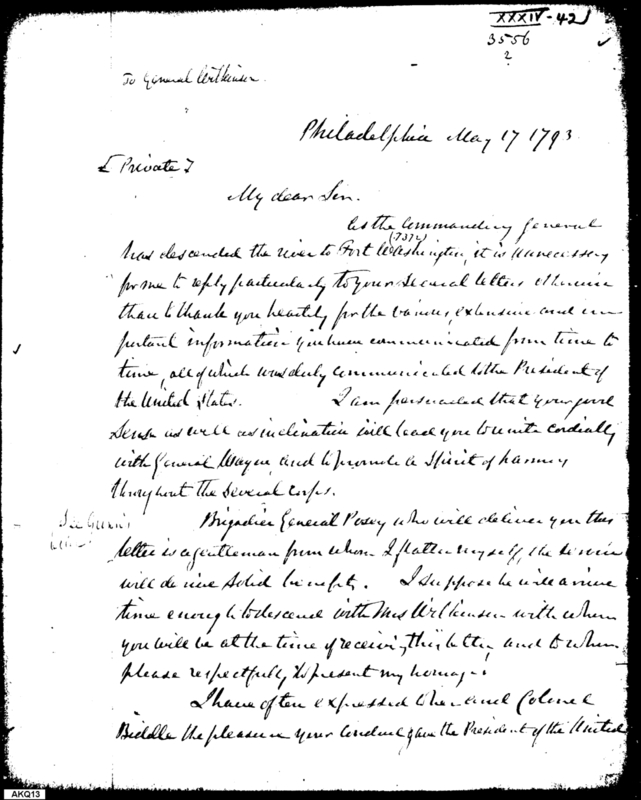 XXXIV-42
3556
2
To General Wilkinson
Philadelphia May 17 1793
[Private]
My dear Sir.
As the Commanding General
has descended the river to Fort Washington, it is unnecessary
(737)
for me to reply particularly to your several letters otherwise
than to thank you heartily for the various extensive and im
portant information you have communicated from time to
time, all of which was duly communicated to the President of
the United States. I am persuaded that your good
Sense as well as inclination will lead you to unite cordially
with General Wayne, and to promote a Spirit of harmony
throughout the Several corps.
Brigadier General Posey who will deliver you this
letter is a gentleman from whom I flatter myself, the service
will derive solid benefits. I suppose he will arrive
time enough to descend with Mrs Wilkinson with whom
you will be at the time of receiving this letter and to whom
please respectfully to present my homage.
I have often expressed to her and Colonel
Biddle the pleasure your conduct gave the President of the United
AKQ13